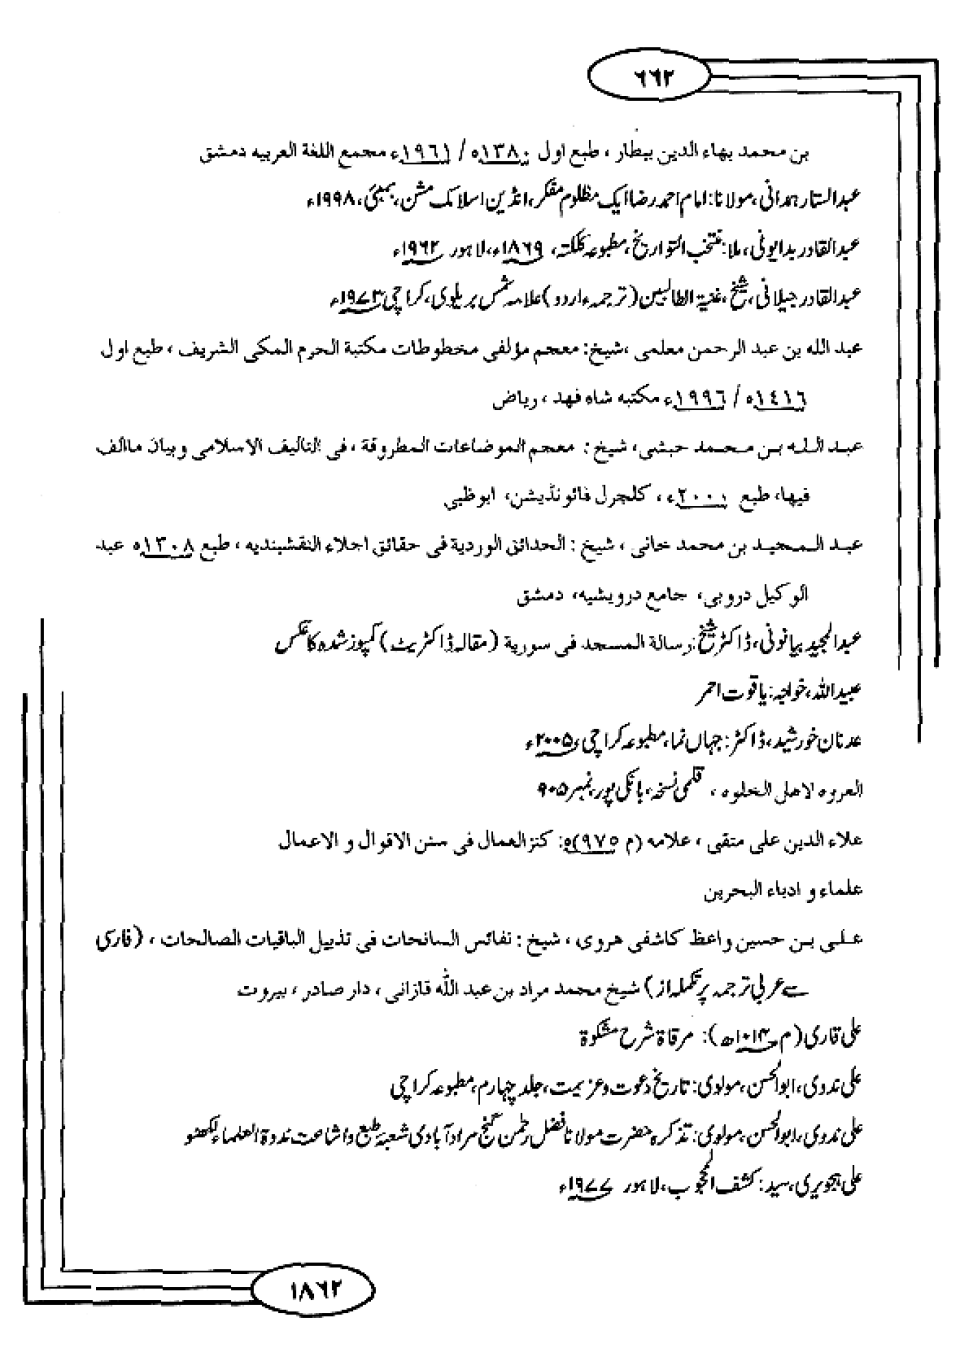 ۶۶۲
بن محمد بهاء الدين بيطار ، طبع اول ۱۳۸۰ه / ۱۹۶۱ء مجمع اللغة العربيه دمشق
عبدالستار ہمدانی، مولانا: امام احمد رضا ایک مظلوم مفکر، انڈین اسلامک مشن، بمبئی، ۱۹۹۸ء
عبدالقادر بدایونی، ملا: منتخب التواریخ، مطبوعہ کلکتہ، ۱۸۶۹ء، لاہور ۱۹۶۲ء
عبدالقادر جیلانی، شیخ، غنیۃ الطالبین (ترجمہ اردو) علامہ شمس بریلوی، کراچی ۱۹۷۳ء
عبد الله بن عبد الرحمن معلمی ،شیخ: معجم مؤلفی مخطوطات مکتبة الحرم المکی الشریف ، طبع اول
۱۴۱۶ه / ۱۹۹۶ء مکتبه شاه فهد ، ریاض
عبد الله بن محمد حبشی، شیخ : معجم الموضاعات المطروقة ، فی التالیف الاسلامی وبیان ماالف
فیها، طبع ۲۰۰۰ء ، کلچرل فائونڈیشن، ابوظبی
عبد المجید بن محمد خانی ، شیخ : الحدائق الوردیة فی حقائق اجلاء النقشبندیه ، طبع ۱۳۰۸ه عبد
الوکیل دروبی، جامع درویشیه، دمشق
عبدالمجید بیانونی، ڈاکٹر شیخ: رسالة المسجد فی سوریة (مقالہ ڈاکٹریٹ) کمپوز شدہ کا عکس
عبیداللہ، خواجہ: یاقوت احمر
عدنان خورشید، ڈاکٹر: جہاں نما، مطبوعہ کراچی ۲۰۰۵ء
العروه لاهلی الخلوه ، قلمی نسخہ، بانکی پور، نمبر ۹۰۵
علاء الدین علی متقی ، علامه (م ۹۷۵ه): کنزالعمال فی سنن الاقوال و الاعمال
علماء و ادباء البحرین
علی بن حسین واعظ کاشفی هروی ، شیخ : نفائس السانحات فی تذییل الباقیات الصالحات ، (فارسی
سے عربی ترجمہ پر تکملہ از) شیخ محمد مراد بن عبد الله قازانی ، دار صادر ، بیروت
علی قاری (م ۱۰۱۴ھ): مرقاۃ شرح مشکوۃ
علی ندوی، ابوالحسن، مولوی: تاریخ دعوت و عزیمت، جلد چہارم، مطبوعہ کراچی
علی ندوی، ابوالحسن، مولوی: تذکرہ حضرت مولانا فضل رحمٰن گنج مرادآبادی شعبۂ طبع و اشاعت ندوۃ العلماء لکھنو
علی ہجویری، سید: کشف المحجوب، لاہور ۱۹۷۷ء
۱۸۶۲